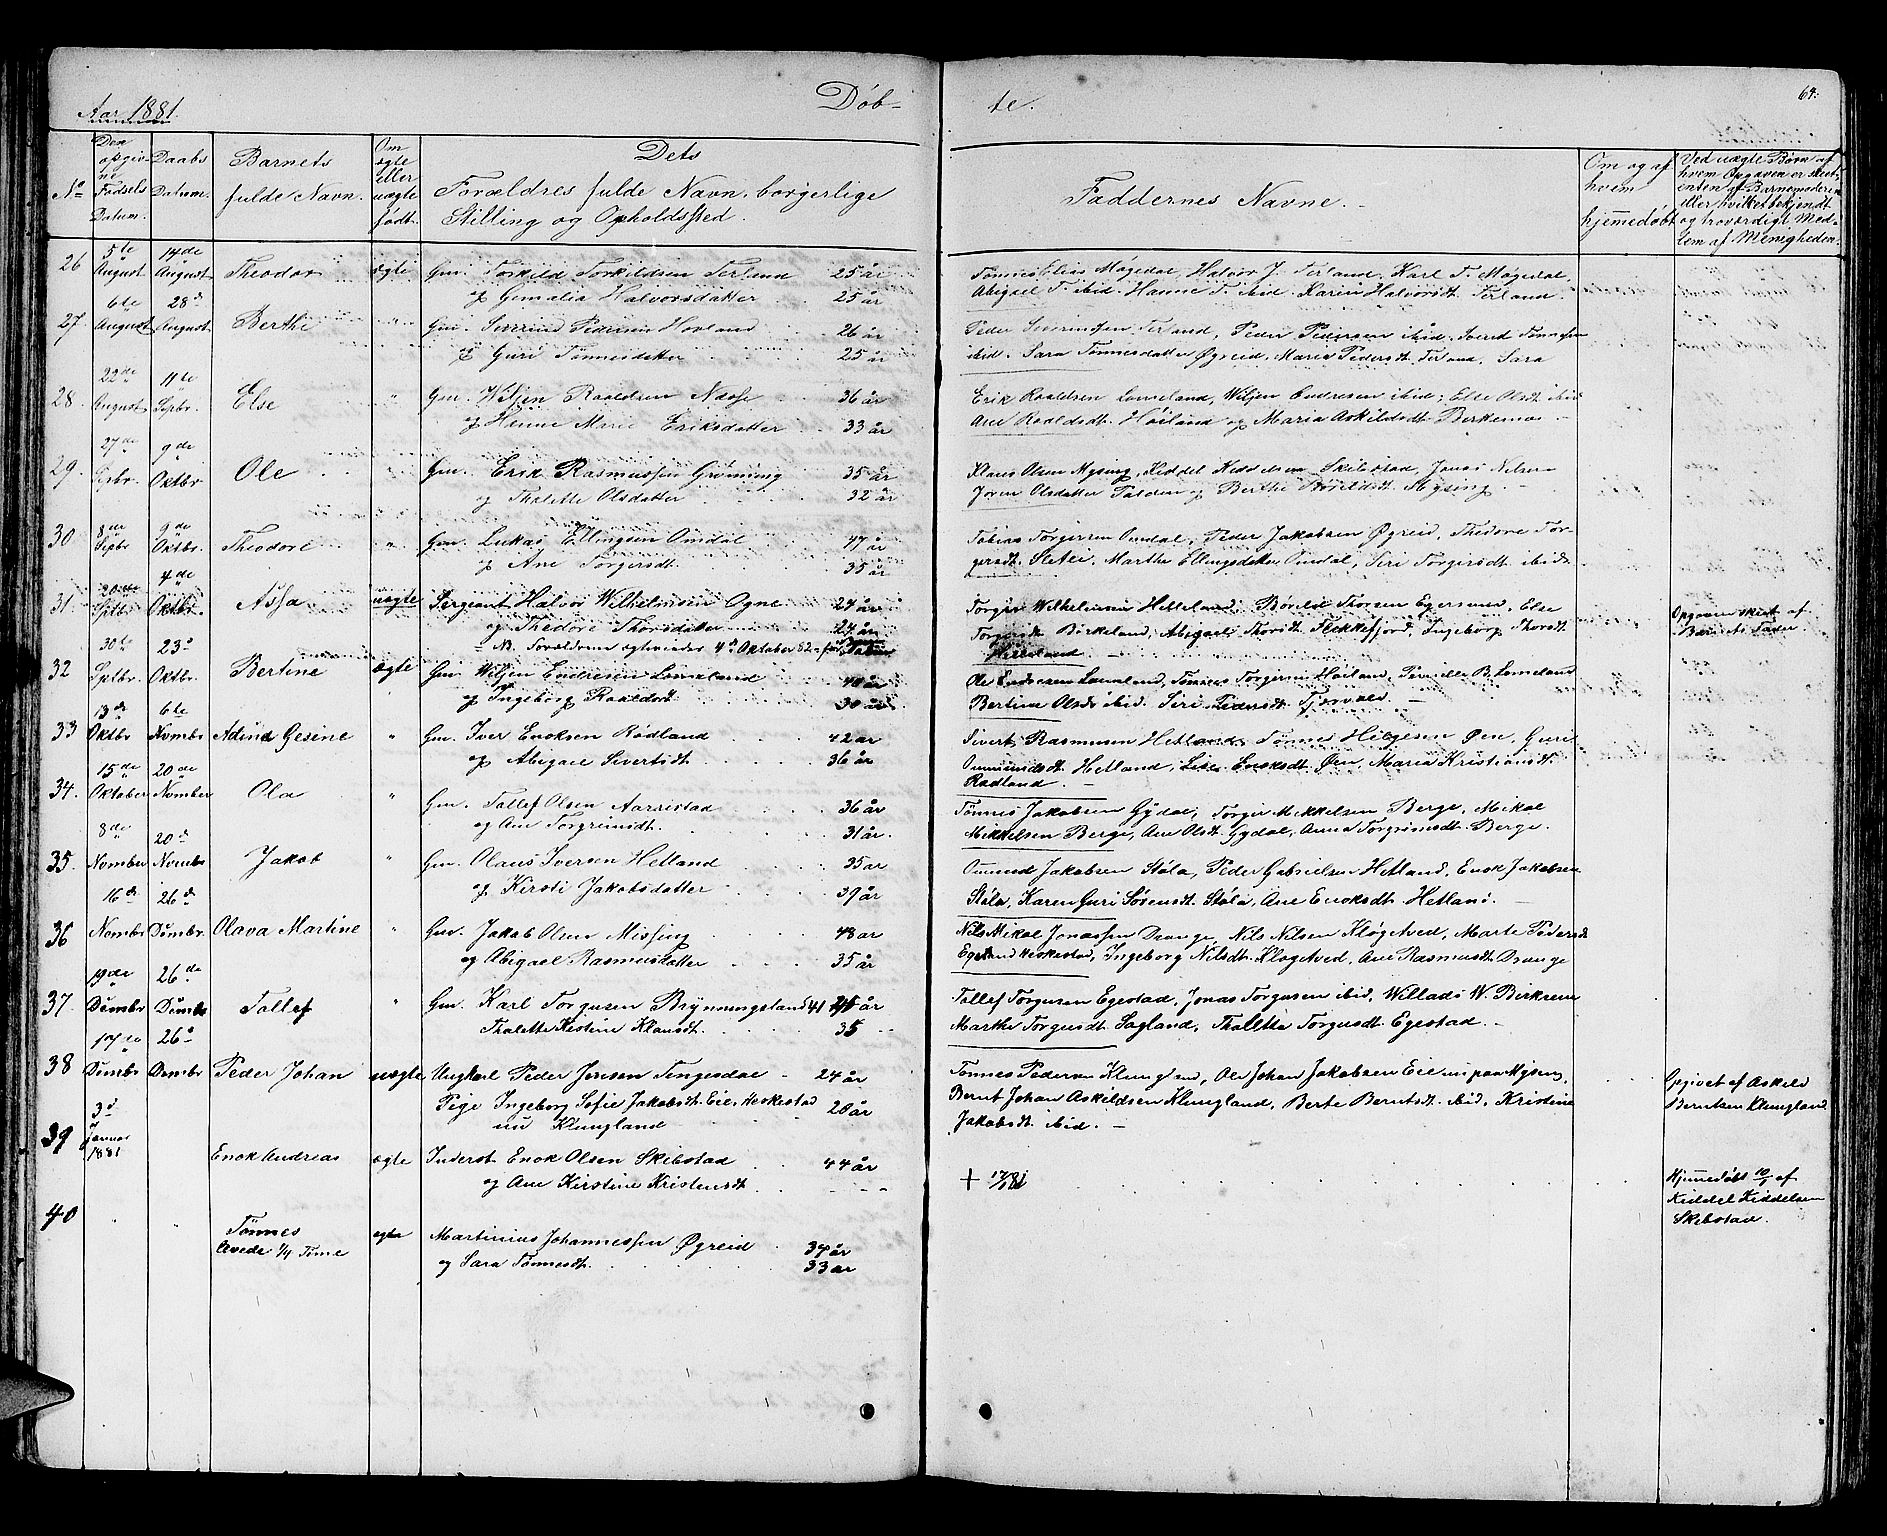 Aar 1881.
Døb-
te.
64.
No
Den opgivne Fødsels Datum.
Daabs Datum.
Barnets fulde Navn.
Om ægte eller uægte født.
Dets
Forældres fulde Navn, borgerlige
Stilling og Opholdssted.
Faddernes Navne.
Om og af hvem hjemmedøbt
Ved uægte Børn af hvem Opgaven er skeet, enten af Barnemoderen eller hvilket bekjendt og troværdigt Medlem af Menigheden.
26 5te August 14de August Theodor ægte Gm. Torkild Torkildsen Terland 25 år
og Gemalia Halvorsdatter 25 år
Tønnes Elias Mågedal, Halvor J. Terland, Karl T. Mågedal,
Abigael T. ibid. Hanne T. ibid. Karen Halvorsdt. Terland.
27 6te August 28d August Berthe " Gm. Severin Pedersen Hovland 26 år
og Guri Tønnesdatter 25 år
Peder Severinsen Terland, Peder Pedersen ibid. Sverid Tønnesen
ibid. Sara Tønnesdatter Øgreid, Maria Pedersdt. Terland, Sara
28 22de August 11te Septbr. Else " Gm. Wiljen Roaldsen Nesse 36 år
og Hanne Marie Eriksdatter 33 år
Erik Roaldsen Lomeland, Wiljen Endresen ibid; Else Olsdt ibid
Ane Roaldsdt. Høiland og Maria Askildsdt Birkemo
29 27de Septbr. 9de Oktbr Ole " Gm. Erik Rasmussen Grøning 35 år
og Thalette Olsdatter 32 år
Klaus Olsen Mysing, Kiddel Kiddelsen Skibstad, Jonas Nilsen
Joren Olsdatter og Berthe Mysing.
30 8de Septbr 9de Oktbr. Theodore " Gm. Lukas Ellingsen Omdal 47 år
og Ane Torgersdt. 35 år
Tobias Torgersen Omdal, Peder Jakobsen Øgreid, Thedore Tor-
gersdt. Slettei, Marthe Ellingsdatter Omdal, Siri Torgersdt. ibid.
31 20de Septbr. 4de Oktbr. Assa uægte Sergeant Halvor Wilhelmsen Ogne 24 år
og Thedore Thorsdatter 24 år
NB. Forældrene ægteviedes 4d Oktober 82
Torger Wilhelmsen Helleland, Børild Thorsen Egersund, Else
Torgersdt. Birkeland, Abigael Thorsdt. Flekkefjord, Ingeborg Thorsdt
Helleland
Opgaven skeet af
Barnets Fader
32 30te Septbr. 23d Oktbr. Bertine ægte Gm. Wiljen Endresen Lomeland 40 år
og Ingeborg Roaldsdt. 30 år
Ole Endresen Lomeland, Tønnes Torgersen Høiland, Pernille B. Lomeland
Bertine Olsdt ibid. Siri Pedersdt. Tjørvald.
33 13de Oktbr 6te Novmbr Adine Gesine " Gm. Iver Enoksen Rødland 42 år
og Abigael Sivertsdt. 36 år
Sivert Rasmusen Hetland, Tønnes Helgesen Øen, Guri
Ommundsdt Hetland, Lise Enoksdt. Øen, Maria Kristiansdt.
Rødland.
34. 15de Oktober 20de Novmber Ola " Gm. Tollef Olsen Aarrestad 36 år
og Ane Torgrimsdt. 31 år.
Tønnes Jakobsen Gydal, Torger Mikkelsen Berge, Mikal
Mikkelsen Berge, Ane Olsdt. Gydal, Anna Torgrimsdt. Berge.
35 8de Novmber 20d Novmbr Jakob " Gm. Olaus Iversen Hetland 35 år
og Kirsti Jakobsdatter 39 år
Ommund Jakobsen Støla, Peder Gabrielsen Hetland, Enok Jakobsen
Støla, Karen Guri Sørensdt. Støla, Ane Enoksdt. Hetland.
36 16d Novmbr 26d Desmbr. Olava Martine " Gm. Jakob Olsen Missing 48 år
og Abigael Rasmusdatter 35 år
Nils Mikal Jonassen Drange, Nils Nilsen Kløgetved, Marte Pedersdt
Egeland Heskestad, Ingeborg Nilsdt. Kløgetved, Ane Rasmusdt. Drange
37. 19de Desmbr 26de Desmbr Tollef " Gm. Karl Torgusen Brynningsland 41 år
Thalette Kistine Klausdt. 35
Tollef Torgusen Egestad, Jonas Torgusen ibid, Willads W. Birkrem
Marthe Torgusdt. Sagland, Thaletta Torgusdt. Egestad.
38 17de Desmbr 26d Desmbr Peder Johan uægte Ungkarl Peder Jensen Tengesdal 24 år
Pige Ingeborg Sofie Jakobsdt. Eie, Heskestad 20 år
nu Klungland
Tønnes Pedersen Klungland, Ole Johan Jakobsen Eie nu paa Mysing,
Bernt Johan Askildsen Klungland, Berte Berntsdt. ibid, Kristine
Jakobsdt ibid.
Opgivet af Askild
Berntsen Klungland
39 3d Januar 1881 Enok Andreas ægte Inderst Enok Olsen Skibstad 44 år
og Ane Kirstine Kristensdt.
+ 17/1 81
Hjemmedøbt 10/1 af
Kiddel Kiddelsen
Skibstad.
40 " " Tønnes ægte Martinius Johannessen Øgreid 34 år
og Sara Tønnesdt. 33 år